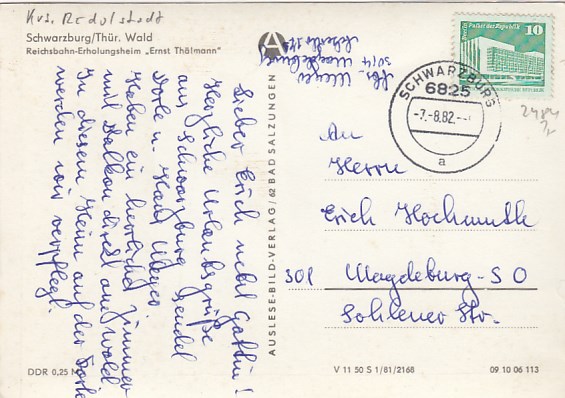 Krs. Rudolstadt
Schwarzburg/Thür. Wald
Reichsbahn-Erholungsheim „Ernst Thälmann"
Lieber Erich nebst Gattin!
Herzliche Urlaubsgrüße
aus Schwarzburg sendet
Dorle u. Karl Meyer.
Haben ein herrliches Zimmer
mit Balkon direkt am Wald
In diesem Heim auf der Karte
werden wir verpflegt.
Meyer
3014 Magdeburg
AUSLESE-BILD-VERLAG/62 BAD SALZUNGEN
10
SCHWARZBURG
6825
-7.-8.82.--
a
An
Herrn
Erich Hochmuth
301 Magdeburg-SO
Sohlener Str.
DDR 0,25 M
V 11 50 S 1/81/2168
09 10 06 113